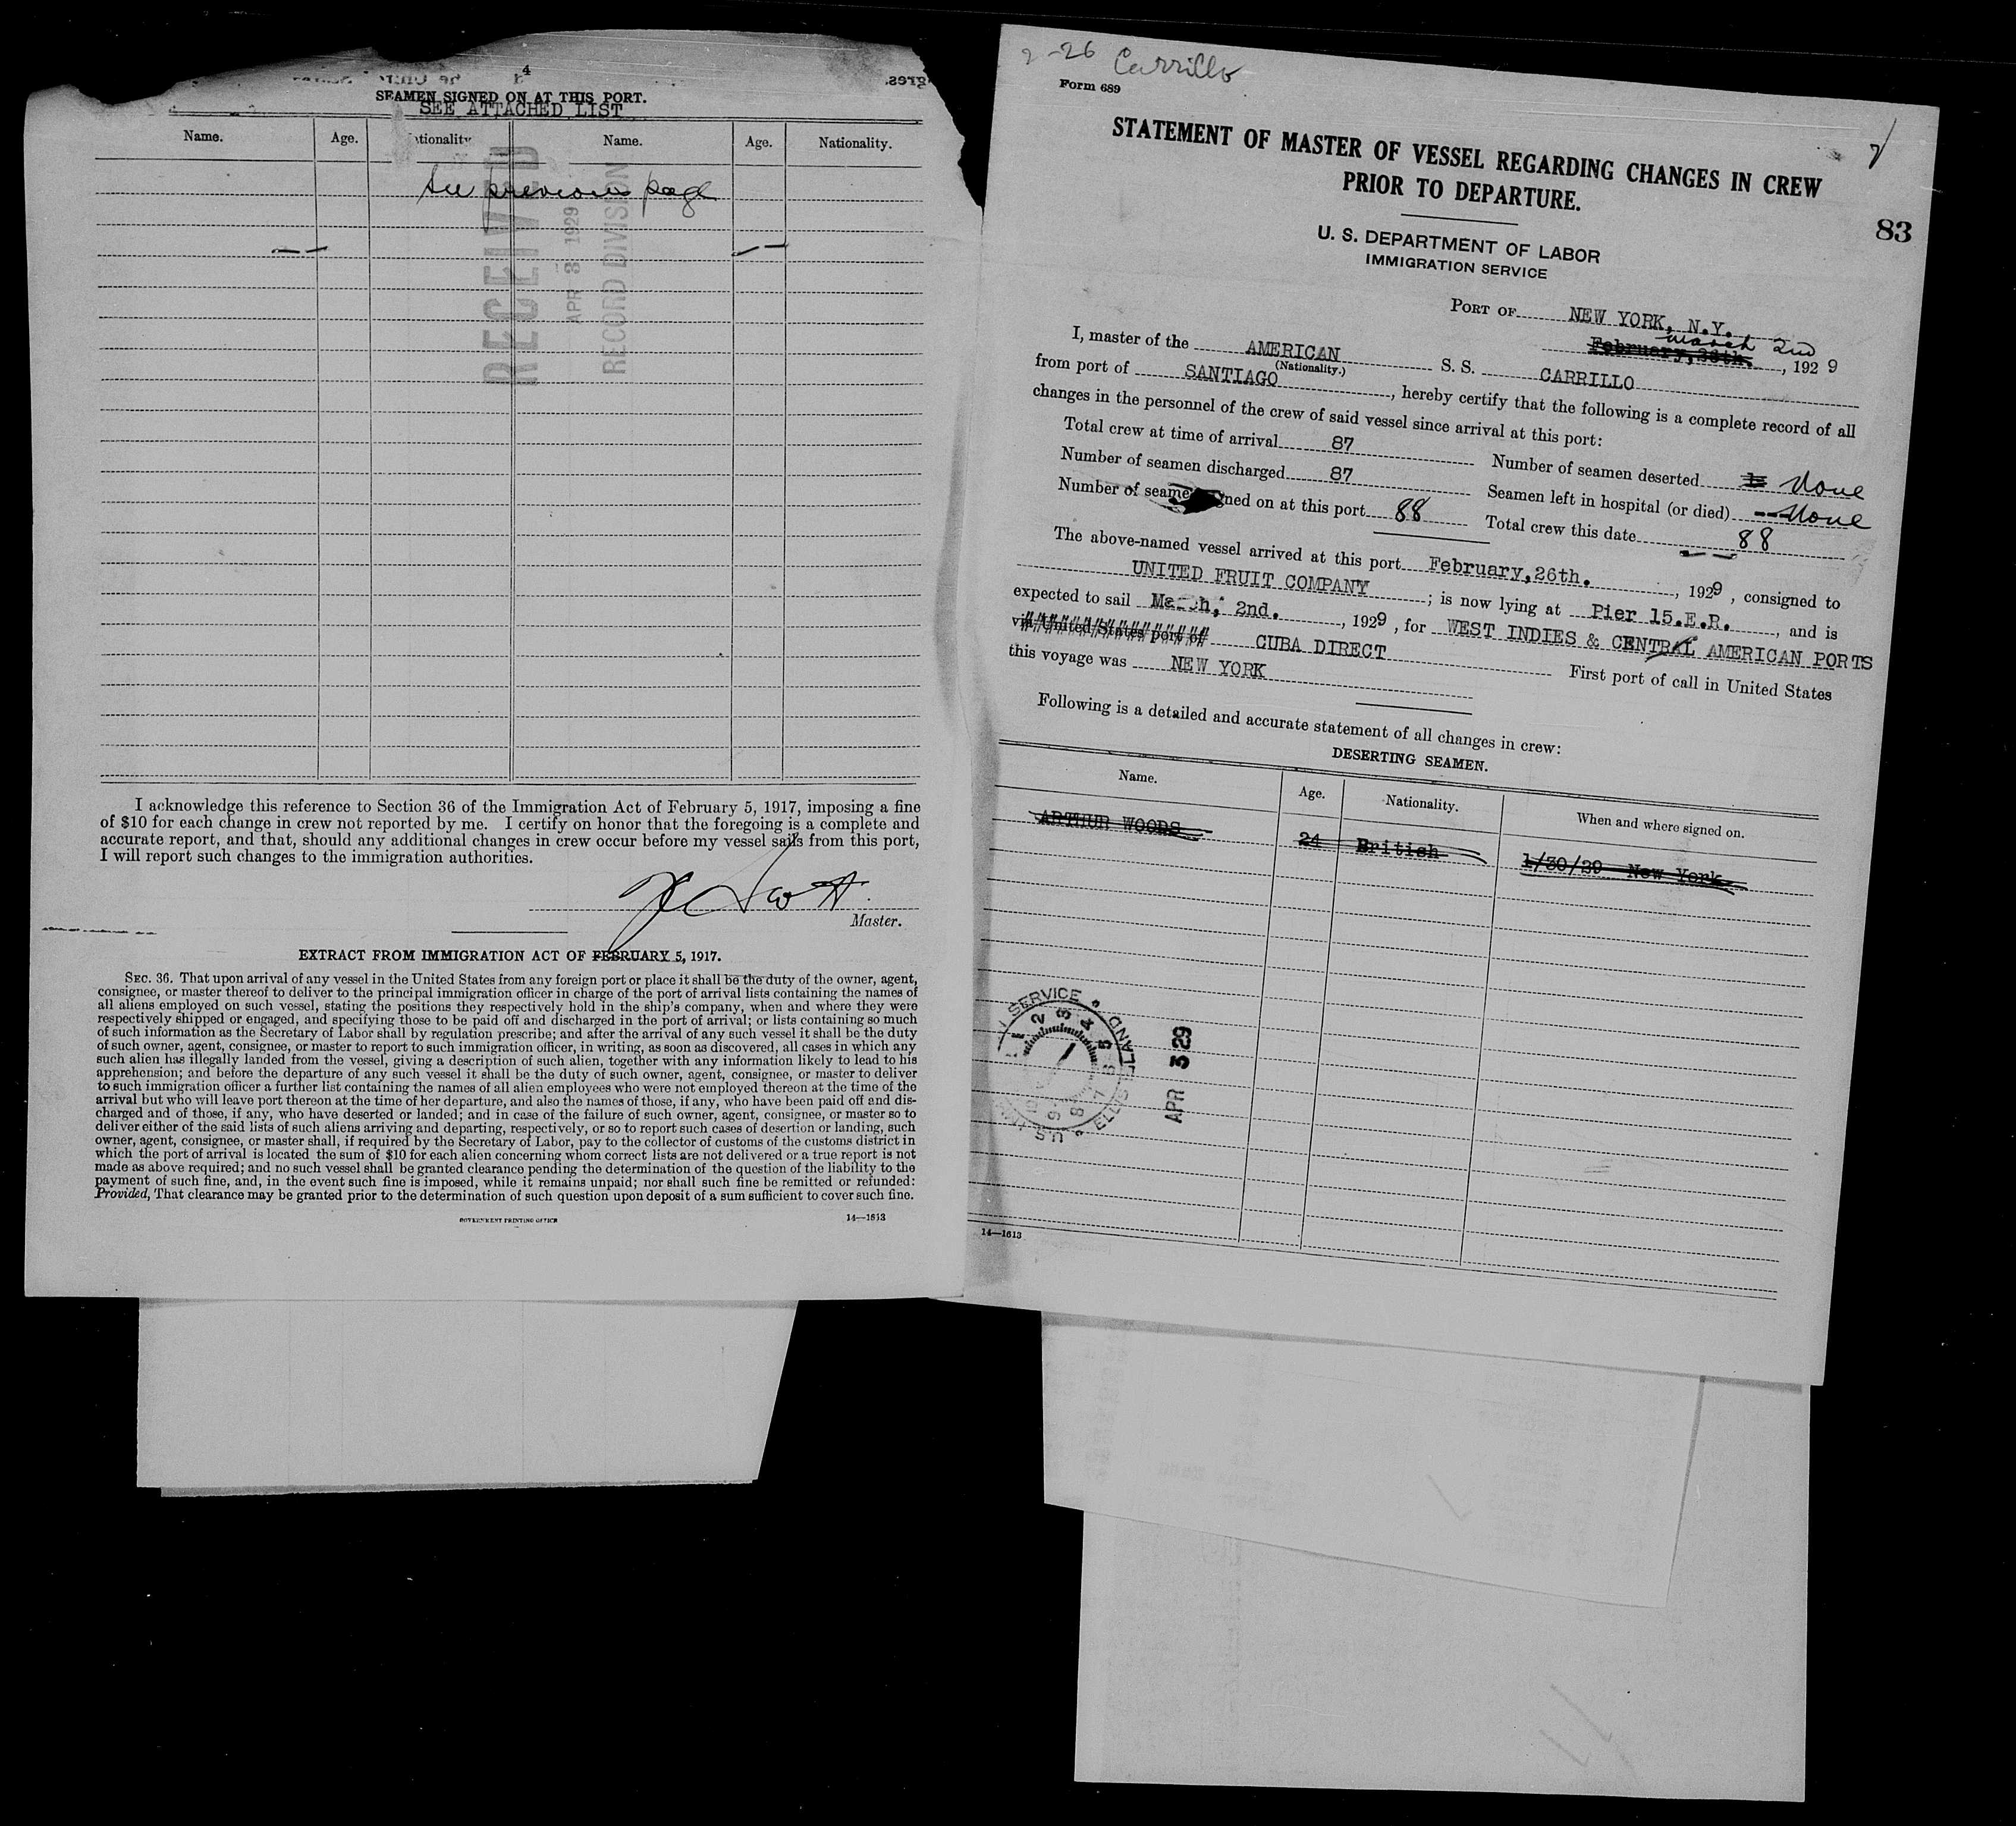 4
SEAMEN SIGNED ON AT THIS PORT.
SEE ATTACHED LIST
Name. Age. Nationality Name. Age. Nationality.
See previous page
RECEIVED
APR 3 1929
RECORD DIVISION
I acknowledge this reference to Section 36 of the Immigration Act of February 5, 1917, imposing a fine
of $10 for each change in crew not reported by me. I certify on honor that the foregoing is a complete and
accurate report, and that, should any additional changes in crew occur before my vessel sails from this port,
I will report such changes to the immigration authorities.
Scott
Master.
EXTRACT FROM IMMIGRATION ACT OF FEBRUARY 5, 1917.
SEC. 36. That upon arrival of any vessel in the United States from any foreign port or place it shall be the duty of the owner, agent,
consignee, or master thereof to deliver to the principal immigration officer in charge of the port of arrival lists containing the names of
all aliens employed on such vessel, stating the positions they respectively hold in the ship's company, when and where they were
respectively shipped or engaged, and specifying those to be paid off and discharged in the port of arrival; or lists containing so much
of such information as the Secretary of Labor shall by regulation prescribe; and after the arrival of any such vessel it shall be the duty
of such owner, agent, consignee, or master to report to such immigration officer, in writing, as soon as discovered, all cases in which any
such alien has illegally landed from the vessel, giving a description of such alien, together with any information likely to lead to his
apprehension; and before the departure of any such vessel it shall be the duty of such owner, agent, consignee, or master to deliver
to such immigration officer a further list containing the names of all alien employees who were not employed thereon at the time of the
arrival but who will leave port thereon at the time of her departure, and also the names of those, if any, who have been paid off and dis-
charged and of those, if any, who have deserted or landed; and in case of the failure of such owner, agent, consignee, or master so to
deliver either of the said lists of such aliens arriving and departing, respectively, or so to report such cases of desertion or landing, such
owner, agent, consignee, or master shall, if required by the Secretary of Labor, pay to the collector of customs of the customs district in
which the port of arrival is located the sum of $10 for each alien concerning whom correct lists are not delivered or a true report is not
made as above required; and no such vessel shall be granted clearance pending the determination of the question of the liability to the
payment of such fine, and, in the event such fine is imposed, while it remains unpaid; nor shall such fine be remitted or refunded:
Provided, That clearance may be granted prior to the determination of such question upon deposit of a sum sufficient to cover such fine.
GOVERNMENT PRINTING OFFICE 14—1613
2-26 Carrillo
Form 689
STATEMENT OF MASTER OF VESSEL REGARDING CHANGES IN CREW
PRIOR TO DEPARTURE.
83
U. S. DEPARTMENT OF LABOR
IMMIGRATION SERVICE
PORT OF NEW YORK, N.Y.
March 2nd
February, 28th. , 1929
I, master of the AMERICAN S. S. CARRILLO
(Nationality.)
from port of SANTIAGO , hereby certify that the following is a complete record of all
changes in the personnel of the crew of said vessel since arrival at this port:
Total crew at time of arrival 87 Number of seamen deserted None
Number of seamen discharged 87 Seamen left in hospital (or died) None
Number of seamen signed on at this port 88 Total crew this date 88
The above-named vessel arrived at this port February,26th. , 1929 , consigned to
UNITED FRUIT COMPANY ; is now lying at Pier 15.E.R. , and is
expected to sail March, 2nd. , 1929 , for WEST INDIES & CENTRAL AMERICAN PORTS
via United States port of CUBA DIRECT First port of call in United States
this voyage was NEW YORK
Following is a detailed and accurate statement of all changes in crew:
DESERTING SEAMEN.
Name. Age. Nationality. When and where signed on.
ARTHUR WOODS 24 British 1/30/29 New York
APR 3 29
14—1613